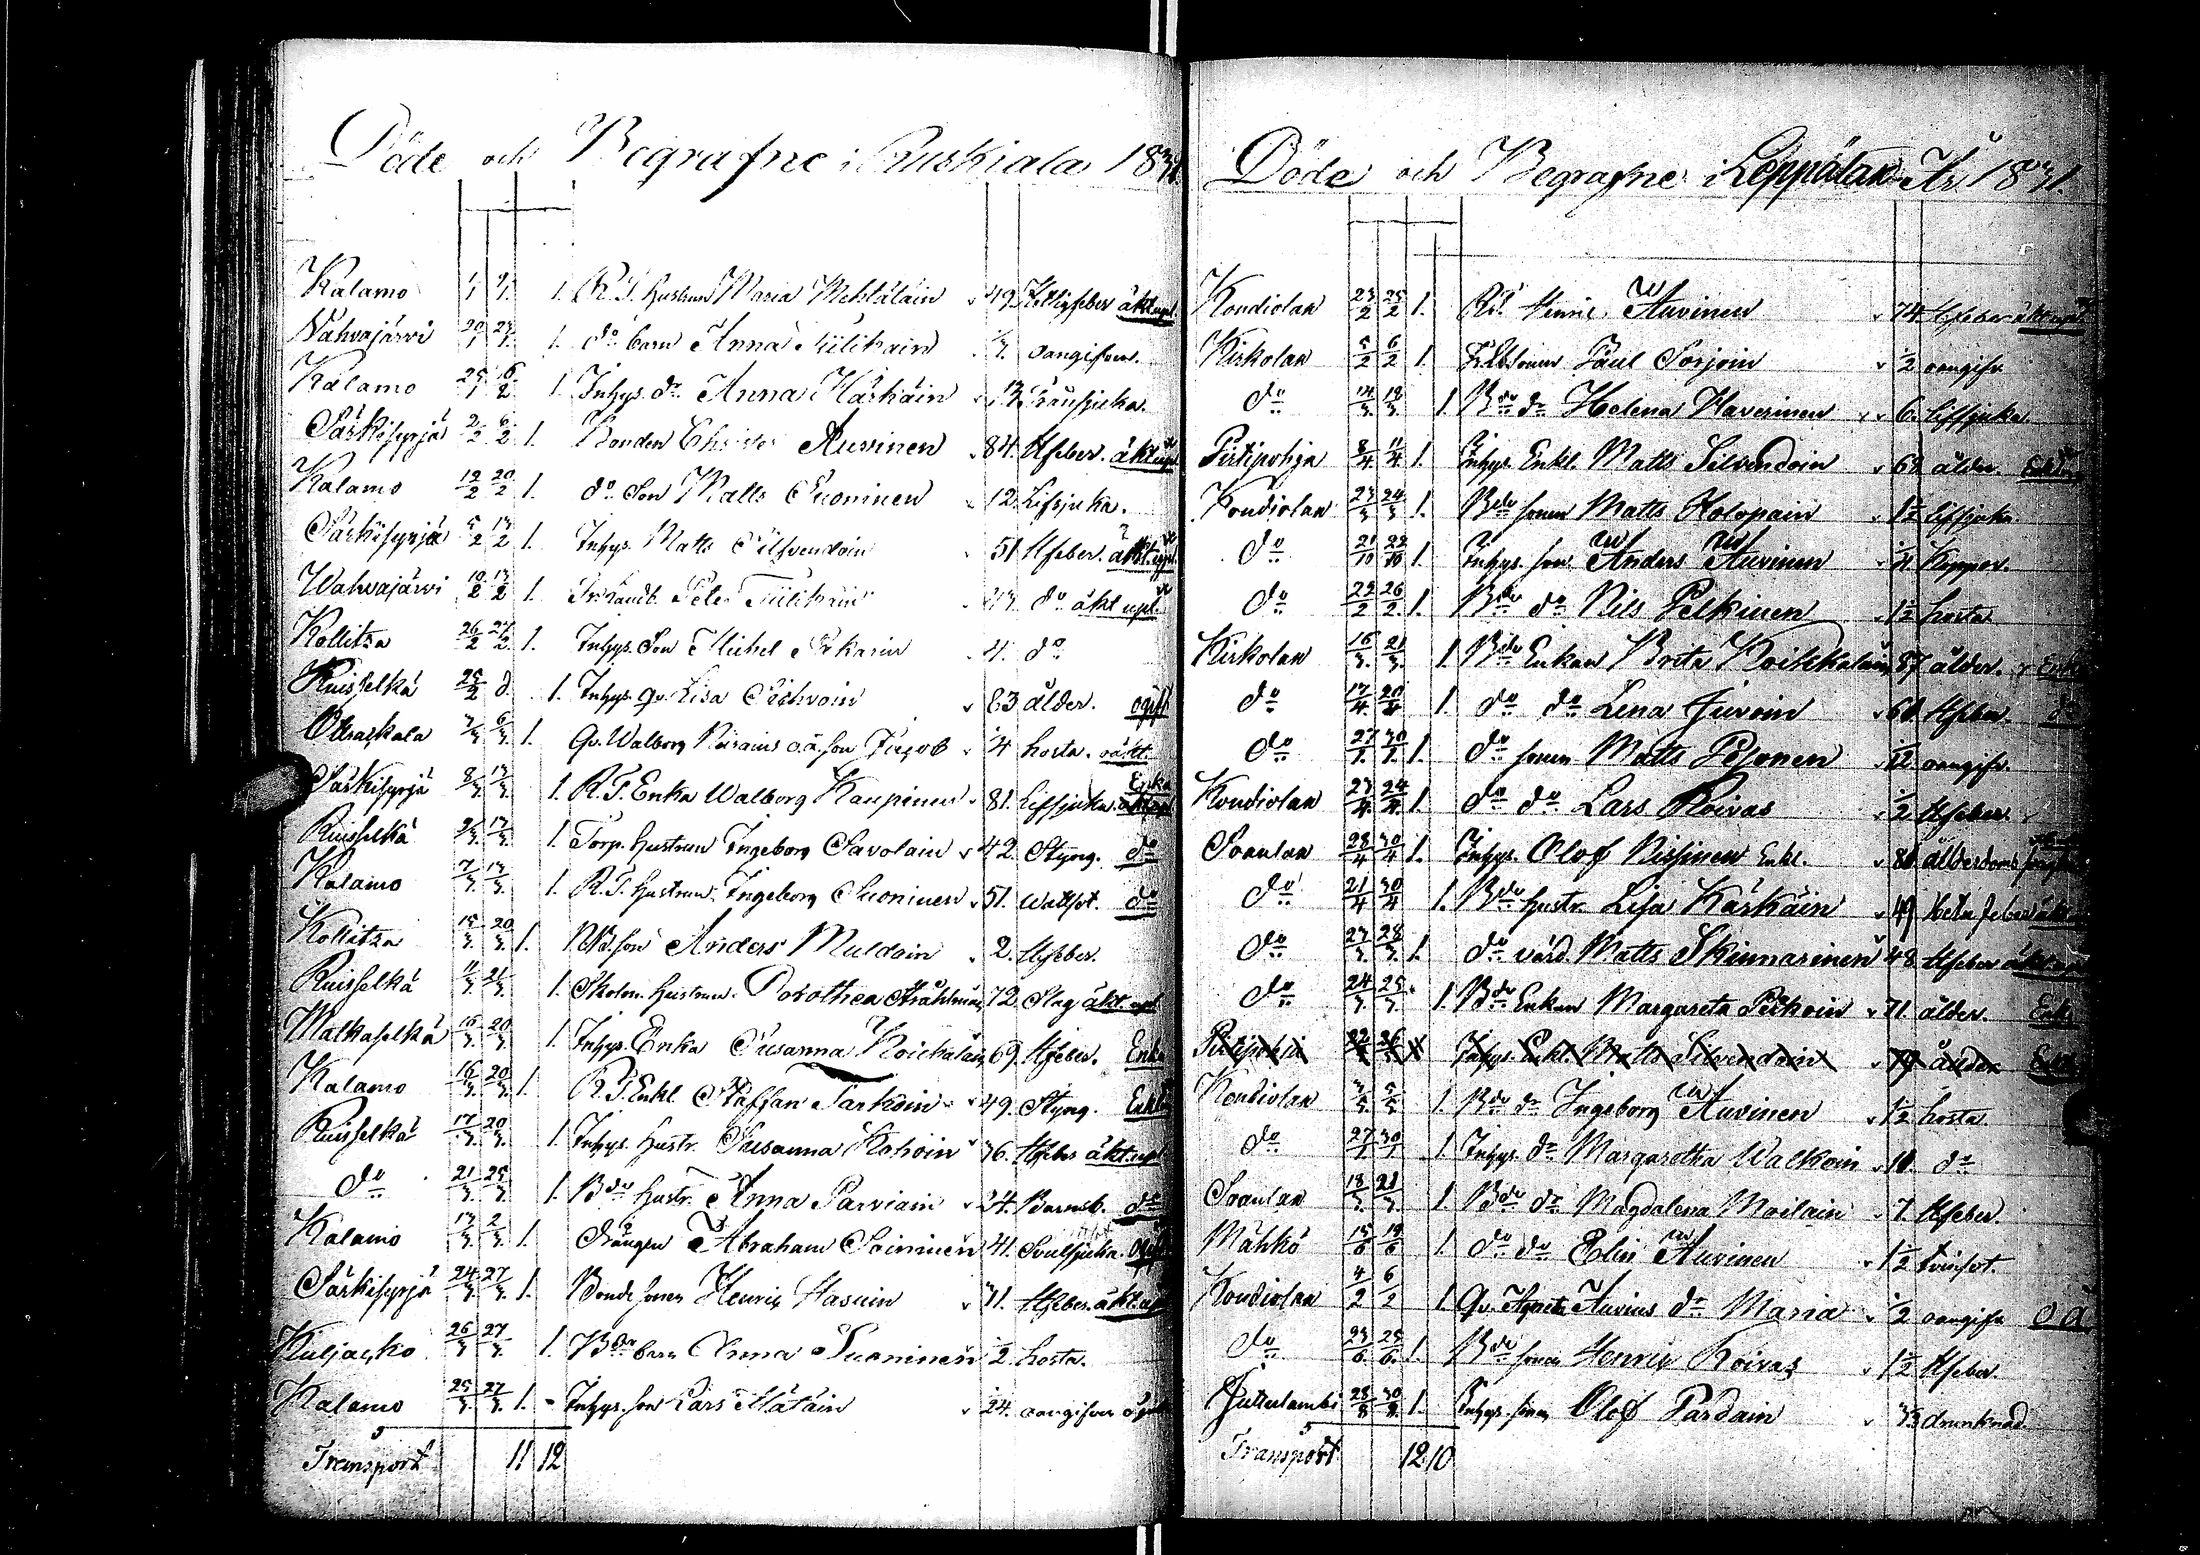 Döde och Begrafne i Ruskiala 1831
Kalamo 1/1 9/1. 1. R. T. hustrun Maria Mehtäläin 49. Hetligfeber äkt. upl.
Wahvajärvi 20/1 23/1. 1. do barn Anna Tiilikain oangifven.
Kalamo 25/1 16/2 1. Inhys. dr Anna Kärkäin 13. Tränsjuka.
Särkisyrjä 2/2 6/2. 1. Bonden Auvinen 84. Hfeber. äkt. upl.
Kalamo 12/2 20/2 1. do Son Matts Suoninen 12. Lifsjuka.
Särkisyrjä 5/2 13/2 1. Inhys. Matts Silfvendoin 51 Hfeber. äkt. upl.
Wahvajärvi 10/2 13/2 1. Peter Tiilikain 43. do äkt upl.
Kollitza 26/2 27/2 1. Inhys. Son Michel 4. do
Ruisselkä 25/2 d. 1. Inhys. Qv. Lisa 83 ålder. ogift
Otraskala 3/3 6/3. 1. Qv. Walborg o. ä. son Jacob 1/4 hosta. oäkt.
Särkisyrjä 8/3 13/3. 1. R. T. Enka Walborg Kaupinen 81. Lifsjuka. Enka
Ruisselkä 13/3. 1. Torp. Hustrun Ingeborg Savolain 42. Styng. do
Kalamo 7/3 13/3. 1. R. T. Hustrun Ingeborg Suoninen 51. Wattsot. do
Kollitza 15/3. 20/3. 1. son Anders Muldoin 2. Hfeber.
Ruisselkä 11/3. 21/3. 1. Skolm. Hustrun Dorothea Stråhlman 72. Slag äkt. upl
Matkaselkä 16/3. 20/3. 1. Inhys. Enka Susanna Koickaläin 69. Hfeber. Enka
Kalamo 16/3. 20/3. 1. R. T. Enkl. Staffan Tarkoin 49. Styng. Enkl
Ruisselkä 17/3. 20/3. 1. Inhys. Hustr. Susanna Kohoin 36. Hfeber äkt. upl
do 21/3. 25/3. 1. Bde Hustr. Anna Parviain 34. Barnsb. do
Kalamo 13/3. 2/3. 1. Drängen Abraham Soininen 41. Svulsjuka. Ogift
Särkisyrjä 24/3. 27/3. 1. Bonde sonen Henric Hasuin 31. Hfeber. äkt. up
Kuljacko 26/3. 27/3. 1. Bde barn Anna Suoninen 1/2. hosta.
Kalamo 25/3. 27/3. 1. Inhys. son Lars Mätäin 24. oangifven ogift
Transport 11 12
Döde och Begrafne i Leppälax År 1831.
Kondiolax 23/2 25/2 1. Rt. Henric Auvinen 74 Hfeber äkt upl
Kirkolax 5/2 6/2 1. sonen Påul Sorjoin 1/2 oangifv.
do 14/3. 18/3. 1. Bde dr Helena Haverinen 6. Liffsjuka
Pirtipohja 8/4 11/4 1. Inhys. Enkl. Matts Silvendoin 69 ålder. Enkl
Kondiolax 23/3 24/3 1. Bde sonen Matts Holopain 1 1/2 Liffsjuka.
do 21/10 22/10 1. Inhys. son Anders Auvinen 1/4 Koppor.
do 22/2 26/2. 1. Bde do Nils Pelkinen 1 1/2 hosta
Kirkolax 16/3. 21/3. 1. Bde Enkan Brita Koikkaläin 87 ålder. Enk
do 17/4. 20/4 1. do do Lena Juvoin 68 Hfeber. do
do 27/1. 30/1. 1. do sonen Matts Pesonen 1/12 oangifv.
Kondiolax 23/4. 24/4. 1. do do Lars Koivas 1/2 Hfeber.
Soanlax 28/4 30/4 1. Inhys. Olof Nissinen Enkl. 80 ålderdoms
do 21/4 30/4 1. Bde Hustr. Lisa Kärkäin 49 Heta feber äkt
do 23/3. 28/3. 1. do värd Matts Skinnarinen 48 Hfeber äkt upl
do 24/3. 25/3. 1 Bde Enkan Margareta Pitkoin 71. ålder. Enk
Pirtipohja 26 Inhys Enkl. Matts Silvendoin 79 ålder Enkl
Kondiolax 3/3 5/3 1. Bde dr Ingeborg Auvinen 1 1/2 hosta
do 27/1 30/1 1 Inhys. dr Margaretha Walkoin 10 do
Soanlax 18/3. 21/3. 1. Bde dr Magdalena Moilain 7. Hfeber.
Mähkö 15/6 19/6 1. do do Elin Auvinen 1 1/2 tvinsot.
Kondiolax 4/2 6/2 1. Qv. Agneta Auvins dr Maria 1/2 oangifv. o ä
do 23/6. 25/6. 1. Bde sonen Henric Koivas 1 1/2 Hfeber.
Jullulambi 28/8 30/8. 1. Inhys. sonen Olof Pardain 33 drunknad
Transport 12 10